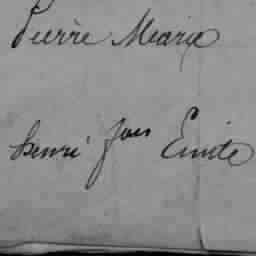 Pierre Marie
henri fois Emile